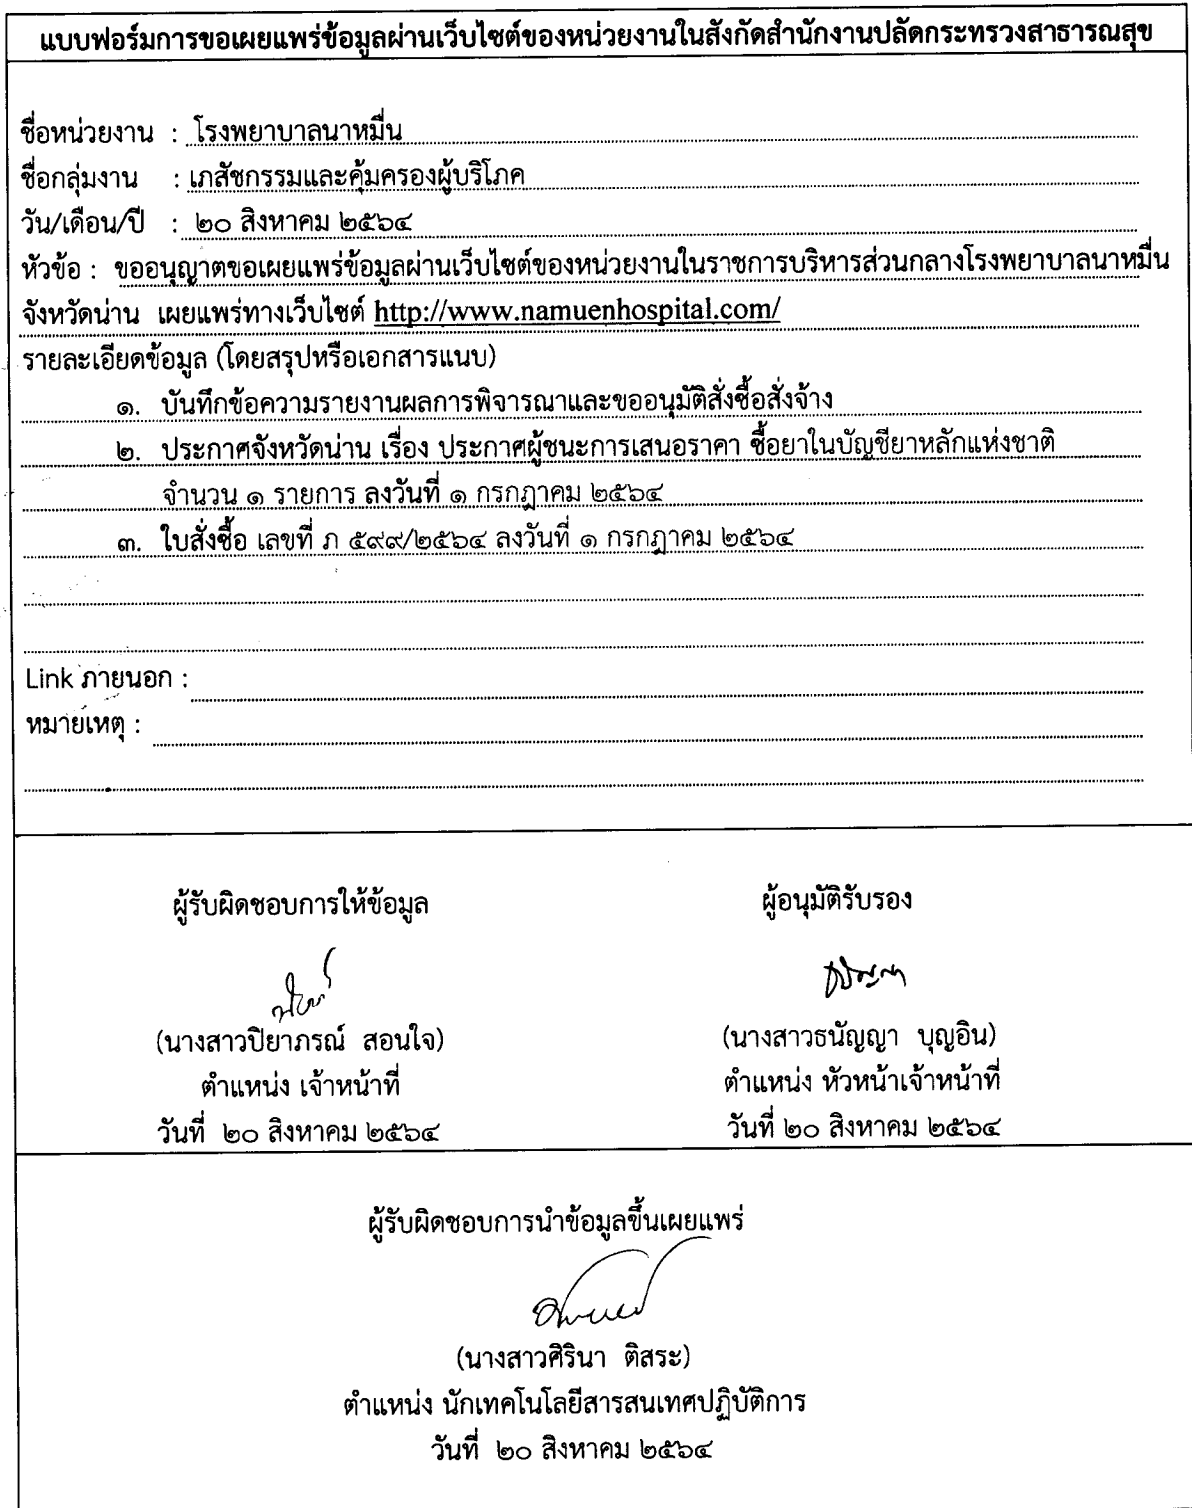 แบบฟอร์มการขอเผยแพร่ข้อมูลผ่านเว็บไซต์ของหน่วยงานในสังกัดสำนักงานปลัดกระทรวงสาธารณสุข
ชื่อหน่วยงาน : โรงพยาบาลนาหมื่น
ชื่อกลุ่มงาน : เภสัชกรรมและคุ้มครองผู้บริโภค
วัน/เดือน/ปี : ๒๐ สิงหาคม ๒๕๖๔
หัวข้อ : ขออนุญาตขอเผยแพร่ข้อมูลผ่านเว็บไซต์ของหน่วยงานในราชการบริหารส่วนกลางโรงพยาบาลนาหมื่น
จังหวัดน่าน เผยแพร่ทางเว็บไซต์ http://www.namuenhospital.com/
รายละเอียดข้อมูล (โดยสรุปหรือเอกสารแนบ)
๑. บันทึกข้อความรายงานผลการพิจารณาและขออนุมัติสั่งซื้อสั่งจ้าง
๒. ประกาศจังหวัดน่าน เรื่อง ประกาศผู้ชนะการเสนอราคา ซื้อยาในบัญชียาหลักแห่งชาติ
จำนวน ๑ รายการ ลงวันที่ ๑ กรกฎาคม ๒๕๖๔
๓. ใบสั่งซื้อ เลขที่ ภ ๕๙๙/๒๕๖๔ ลงวันที่ ๑ กรกฎาคม ๒๕๖๔
Link ภายนอก :
หมายเหตุ :
ผู้รับผิดชอบการให้ข้อมูล ผู้อนุมัติรับรอง
(นางสาวปิยาภรณ์ สอนใจ) (นางสาวธนัญญา บุญอิน)
ตำแหน่ง เจ้าหน้าที่ ตำแหน่ง หัวหน้าเจ้าหน้าที่
วันที่ ๒๐ สิงหาคม ๒๕๖๔ วันที่ ๒๐ สิงหาคม ๒๕๖๔
ผู้รับผิดชอบการนำข้อมูลขึ้นเผยแพร่
(นางสาวศิรินา ติสระ)
ตำแหน่ง นักเทคโนโลยีสารสนเทศปฏิบัติการ
วันที่ ๒๐ สิงหาคม ๒๕๖๔